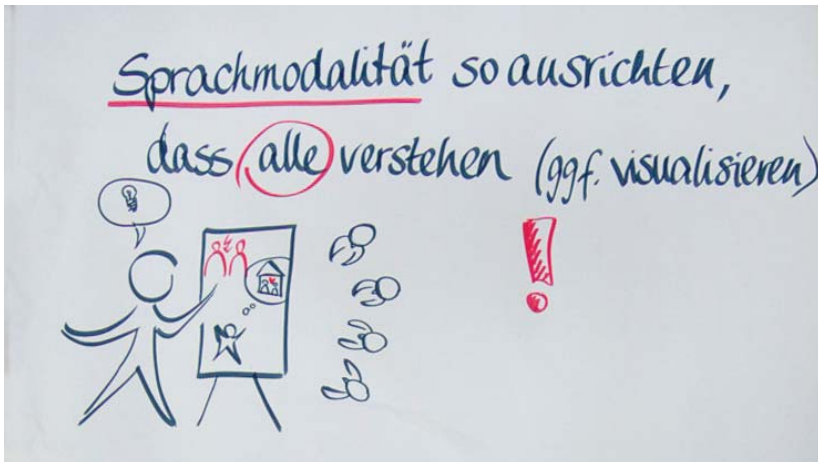 Sprachmodalität so ausrichten,
dass alle verstehen (ggf. visualisieren)
!